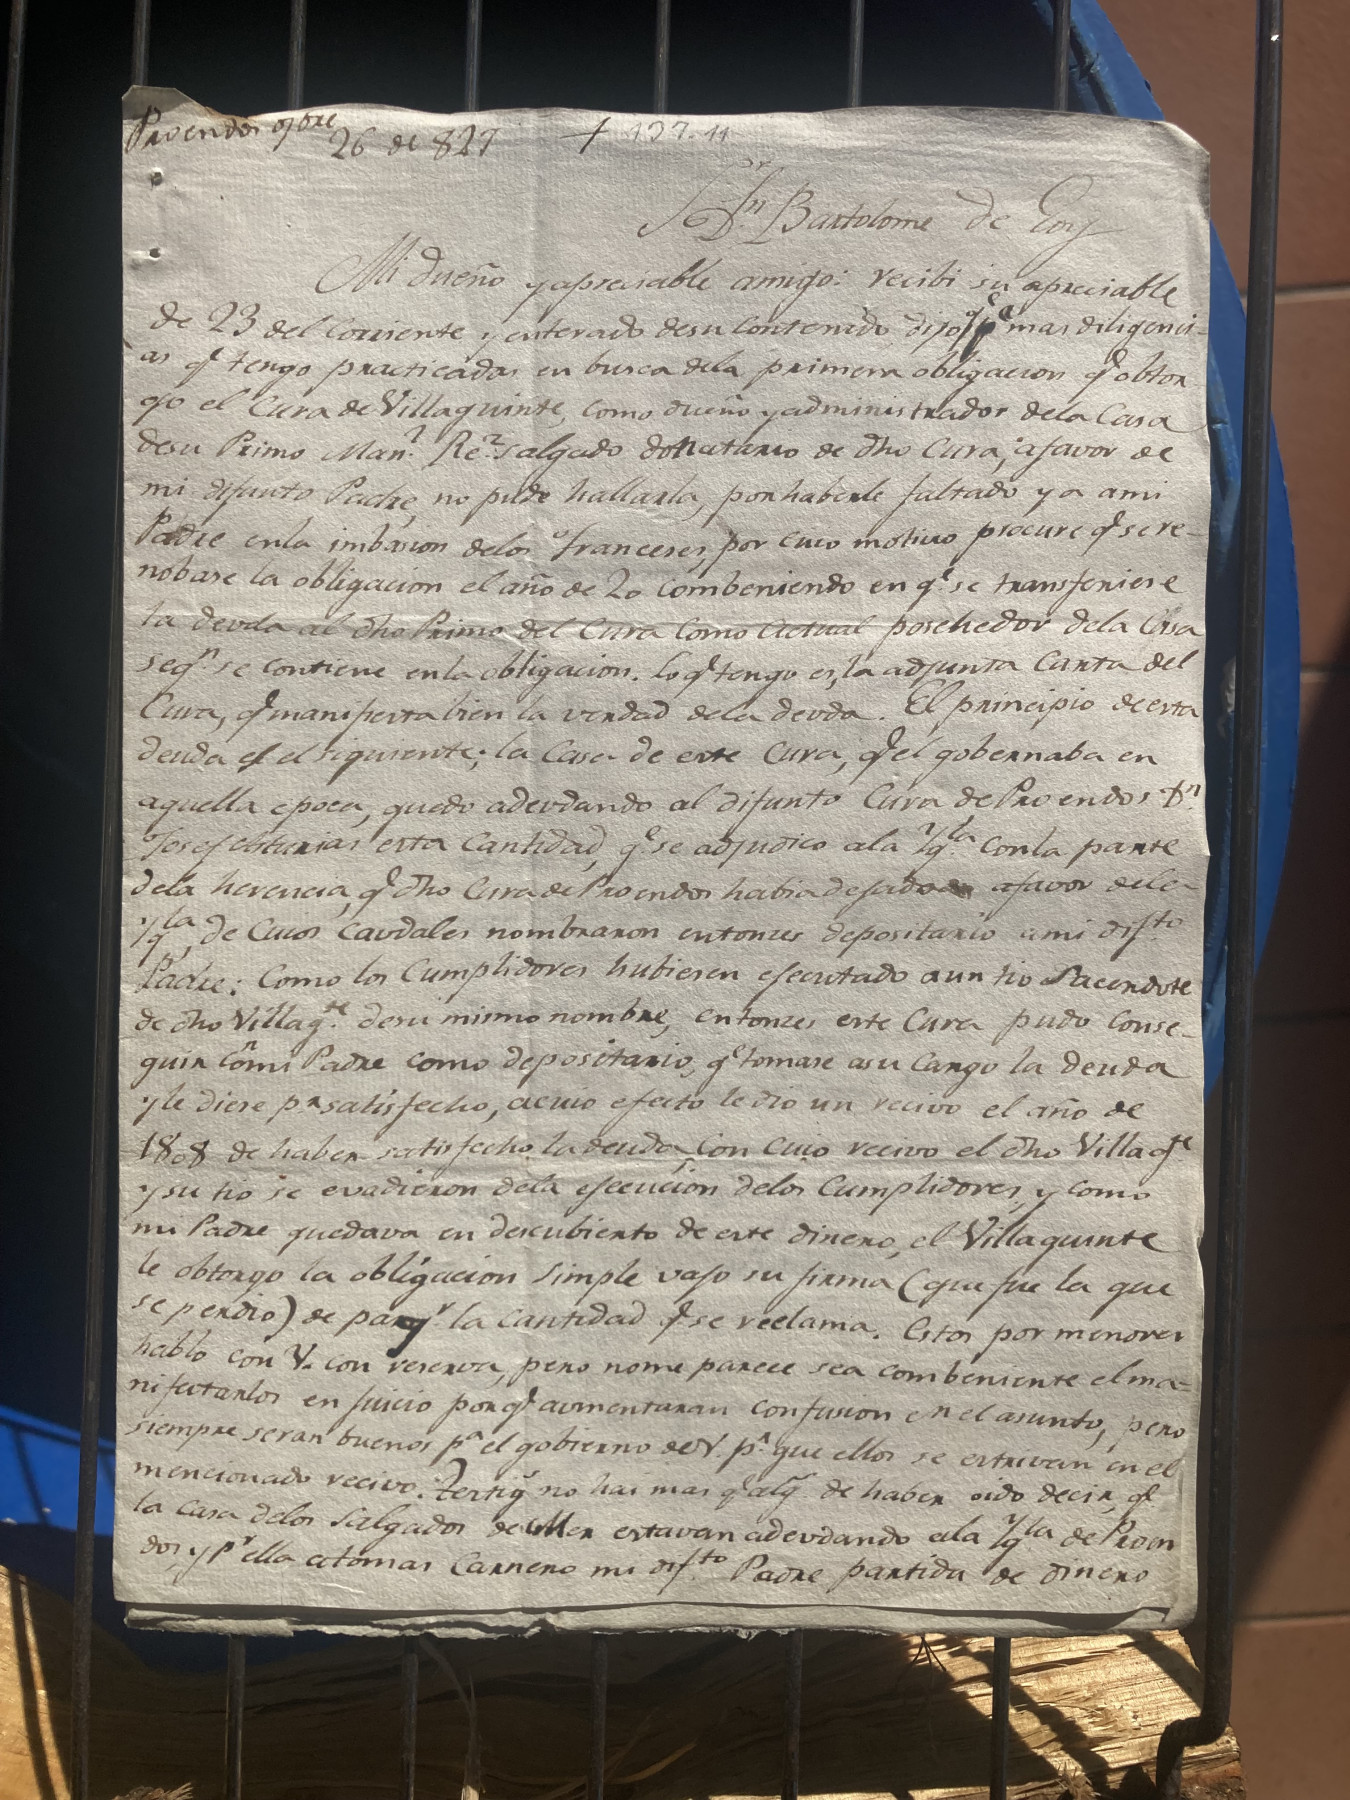 Proendos 9bre
26 de 827 + 137.11
Sr Dn Bartolome de Goy
Mi dueño y apreciable amigo: recibi su apreciable
de 23 del Corriente y enterado desu Contenido digo qe pr mas diligenci=
as qe tengo practicadas en busca dela primera obligacion qe obtor
go el Cura de Villaquinte, como dueño y administrador dela Casa
desu Primo Manl. Rez. Salgado donatario de dho Cura, afavor de
mi difunto Padre, no pude hallarla, por haberle faltado ya a mi
Padre enla imbasion delos franceses, por cuio motivo procure qe se re-
nobase la obligacion el año de 20 combeniendo en qe. se transfiriese
la deuda al dho Primo del Cura como actual posehedor dela Casa
segn se contiene enla obligacion. Lo qe tengo es, la adjunta Carta del
Cura, qe manifiesta bien la verdad dela deuda. El principio de esta
deuda es el siguiente; la Casa de este Cura, qe el gobernaba en
aquella epoca, quedo adeudando al difunto Cura de Proendos Dn.
Josef Asturias esta Cantidad, qe. se adjudico ala Ygla. con la parte
dela herencia, qe dho Cura de Proendos habia dejado afavor dela
Ygla, de Cuios caudales nombraron entonzes depositario ami difto.
Padre: Como los Cumplidores hubiesen ejecutado a un tio Sacerdote
de dho Villaqte. desu mismo nombre, entonzes este Cura pudo Conse-
guir con mi Padre como depositario, qe tomase asu Cargo la deuda
y le diese pr satisfecho, acuio efecto le dio un recivo el año de
1808 de haber satisfecho la deuda, Con cuio recivo el dho Villaqte
y su tio se evadieron dela ejecucion delos Cumplidores, y como
mi Padre quedava en descubierto de este dinero, el Villaquinte
le obtorgo la obligacion simple vajo su firma (que fue la que
se perdio) de pagr. la cantidad qe se reclama. Estos por menores
hablo con V. con reserva, pero nome parece sea combeniente el ma=
nifestarlos en juicio porqe aumentaran confusion en el asunto, pero
siempre seran buenos pa el gobierno de V. pr. que ellos se estrivan en el
mencionado recivo. Testigs no hai mas qe algs. de haber oido decir, qe
la casa delos Salgados de Mer estavan adeudando ala Ygla de Proen
dos, y pr ella a tomas Carnero mi difto. Padre partida de dinero